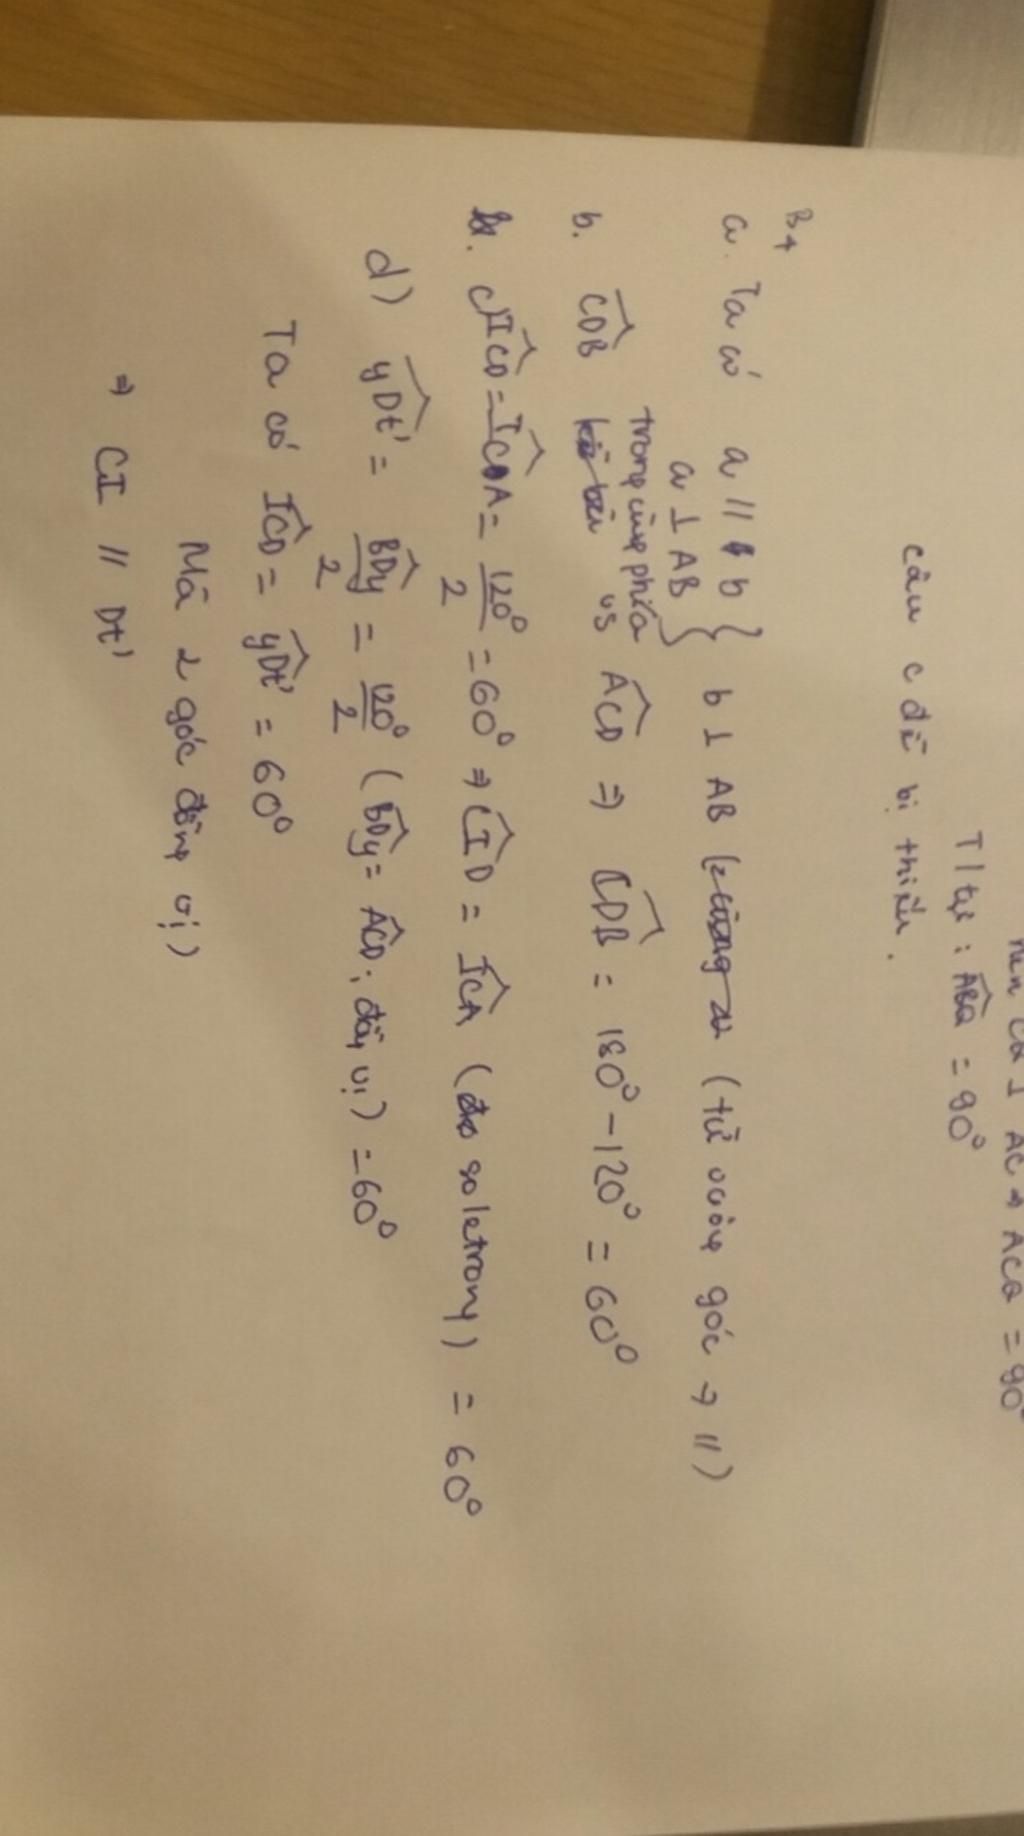 nên CQ ⊥ AC → ACQ = 90°
T/tự : ABQ = 90°
câu c đề bị thiếu.
B4
a. Ta có a // b } b ⊥ AB (từ vuông góc → //)
a ⊥ AB
trong cùng phía
b. CDB vs ACD ⇒ CDB = 180° - 120° = 60°
ICD = ICA = 120°/2 = 60° ⇒ CID = ICA (so le trong) = 60°
d) yDt' = BDy/2 = 120°/2 (BDy = ACD; đồng vị) = 60°
Ta có ICD = yDt' = 60°
Mà 2 góc đồng vị)
⇒ CI // Dt'